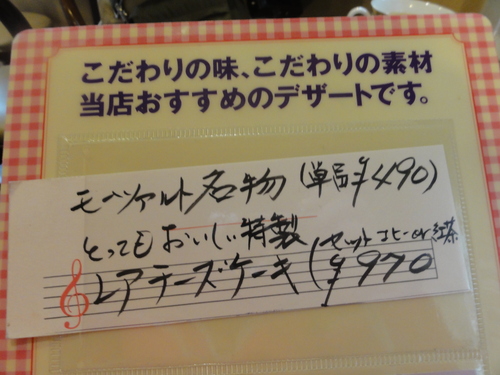 こだわりの味、こだわりの素材
当店おすすめのデザートです。
モーツァルト名物(単品¥490)
とってもおいしい特製
レアチーズケーキ(セット コーヒーor紅茶
¥970